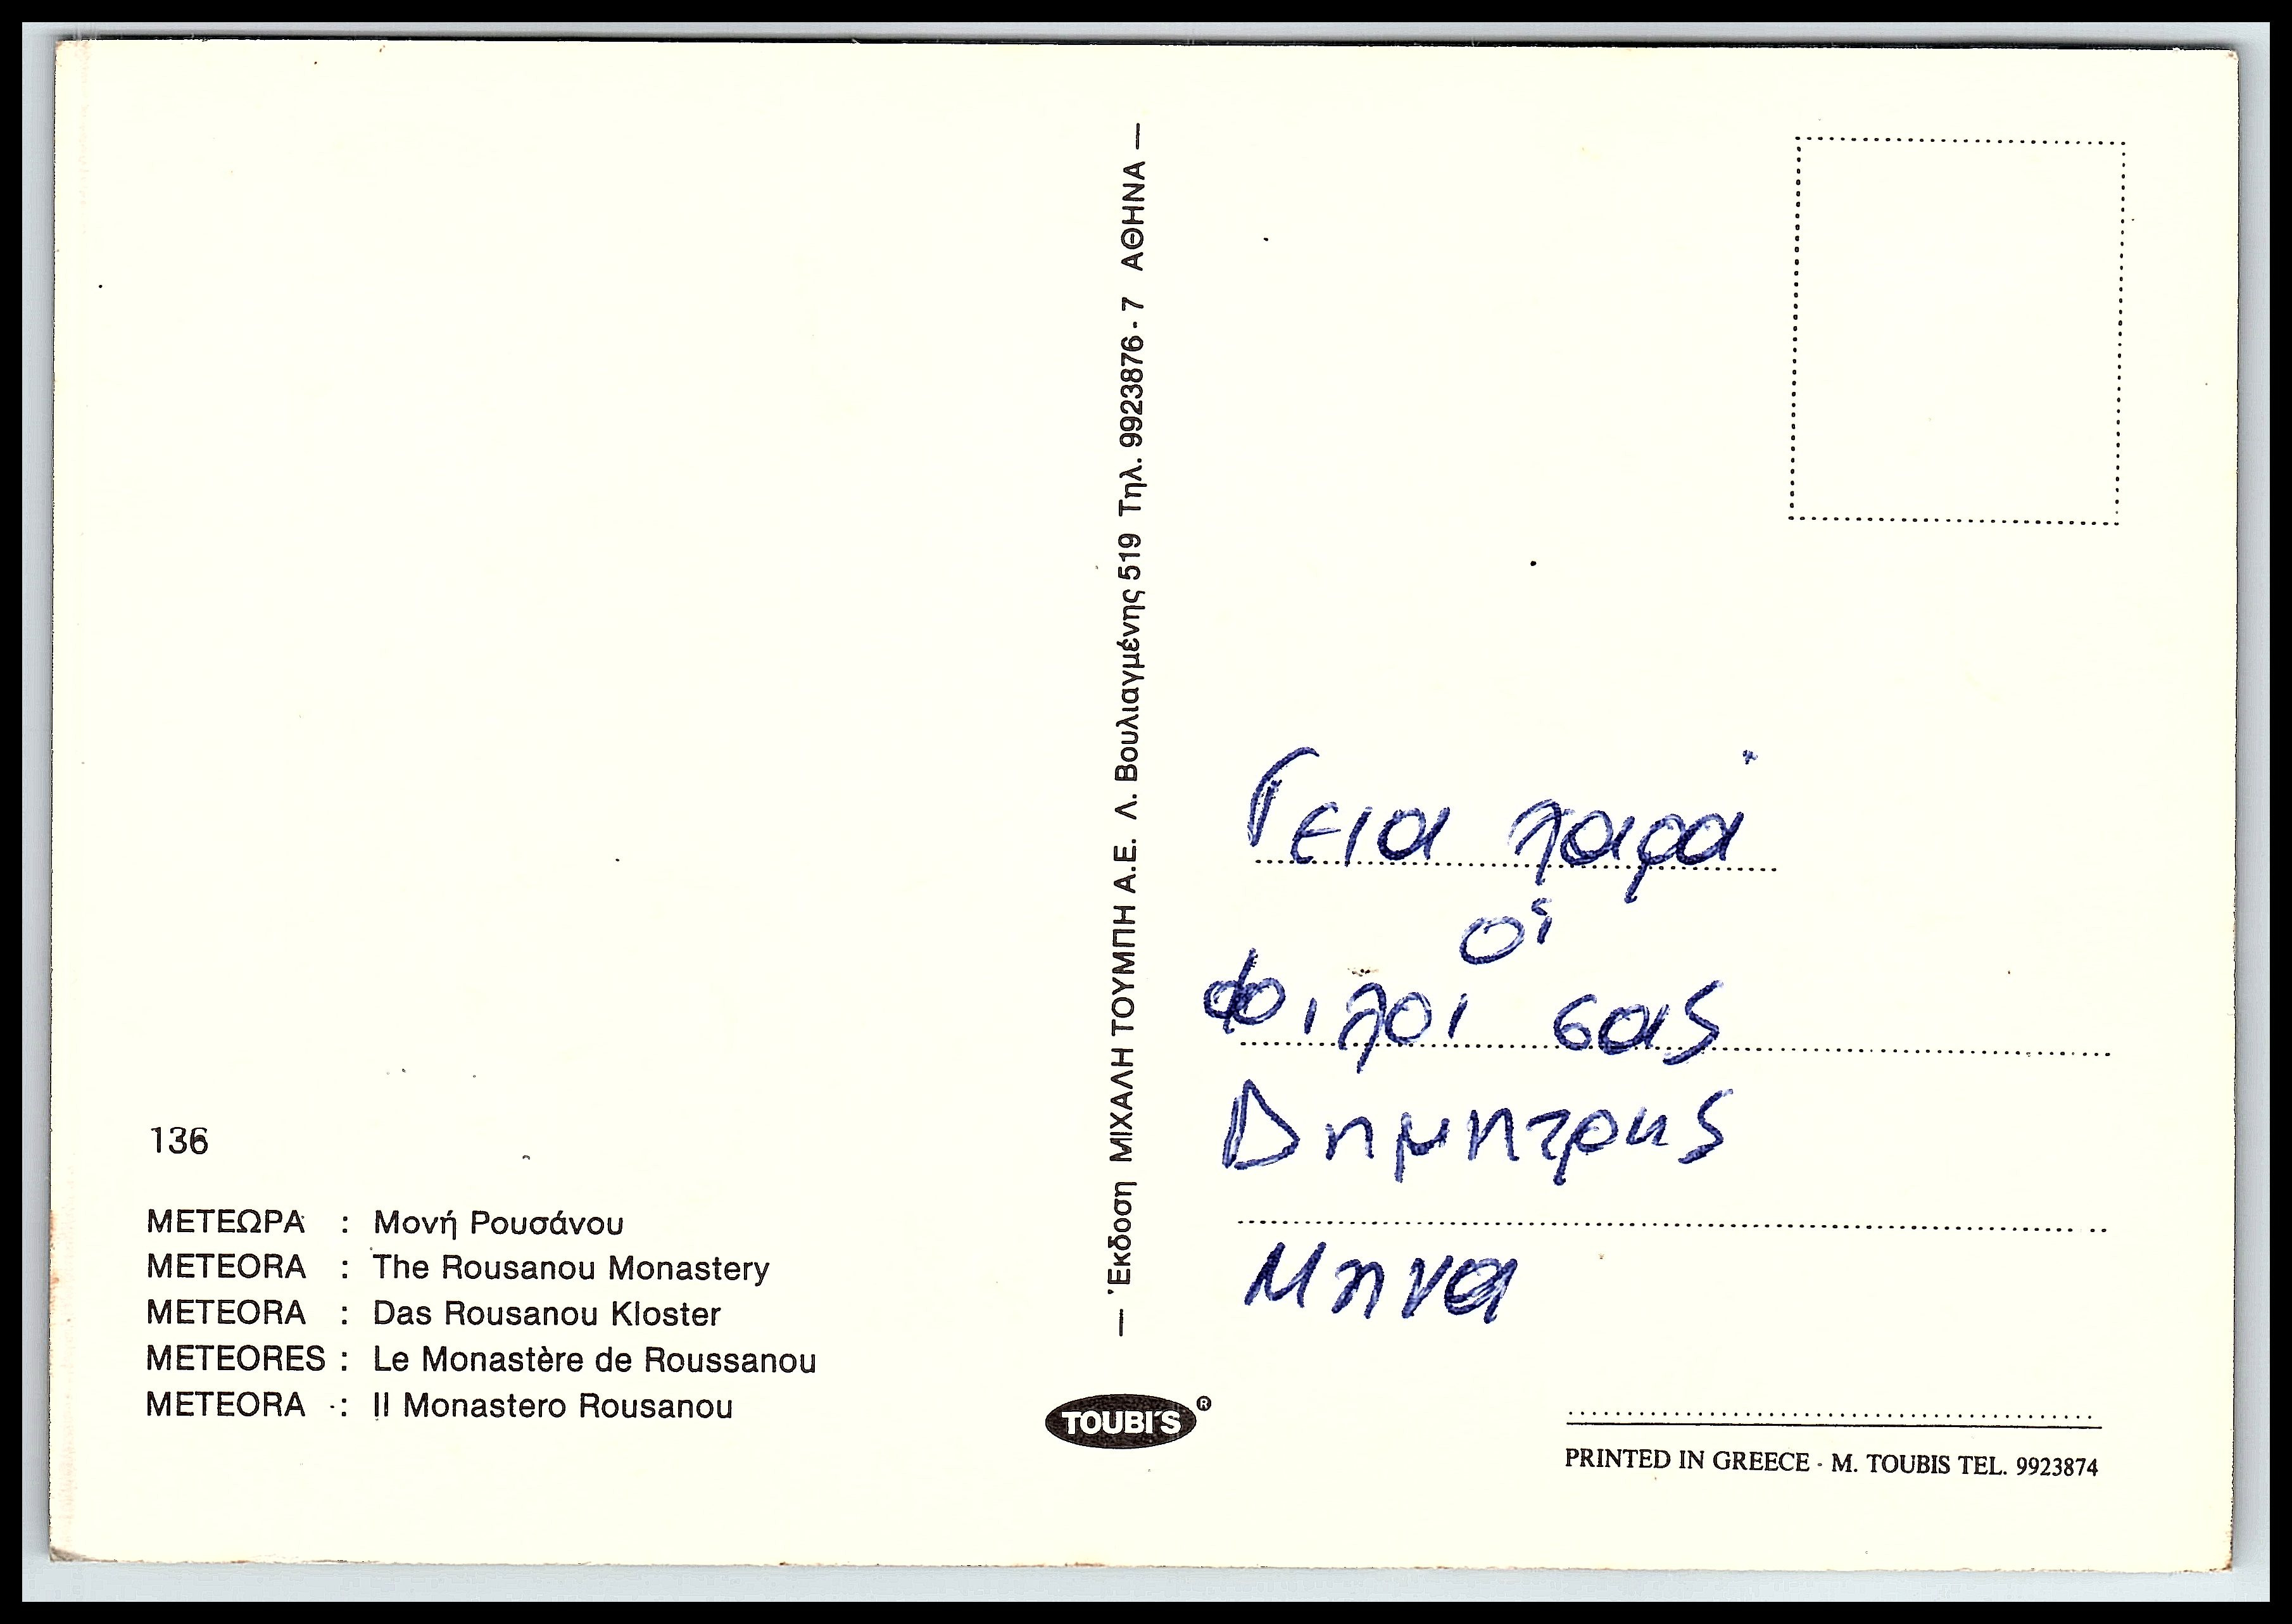 136
ΜΕΤΕΩΡΑ : Μονή Ρουσάνου
METEORA : The Rousanou Monastery
METEORA : Das Rousanou Kloster
METEORES : Le Monastère de Roussanou
METEORA : Il Monastero Rousanou
— Έκδοση ΜΙΧΑΛΗ ΤΟΥΜΠΗ Α.Ε. Λ. Βουλιαγμένης 519 Τηλ. 9923876 - 7 ΑΘΗΝΑ —
TOUBI'S ®
Γεια χαρά
οἱ
φιλοι σας
Δημητρης
Μηνα
PRINTED IN GREECE - M. TOUBIS TEL. 9923874